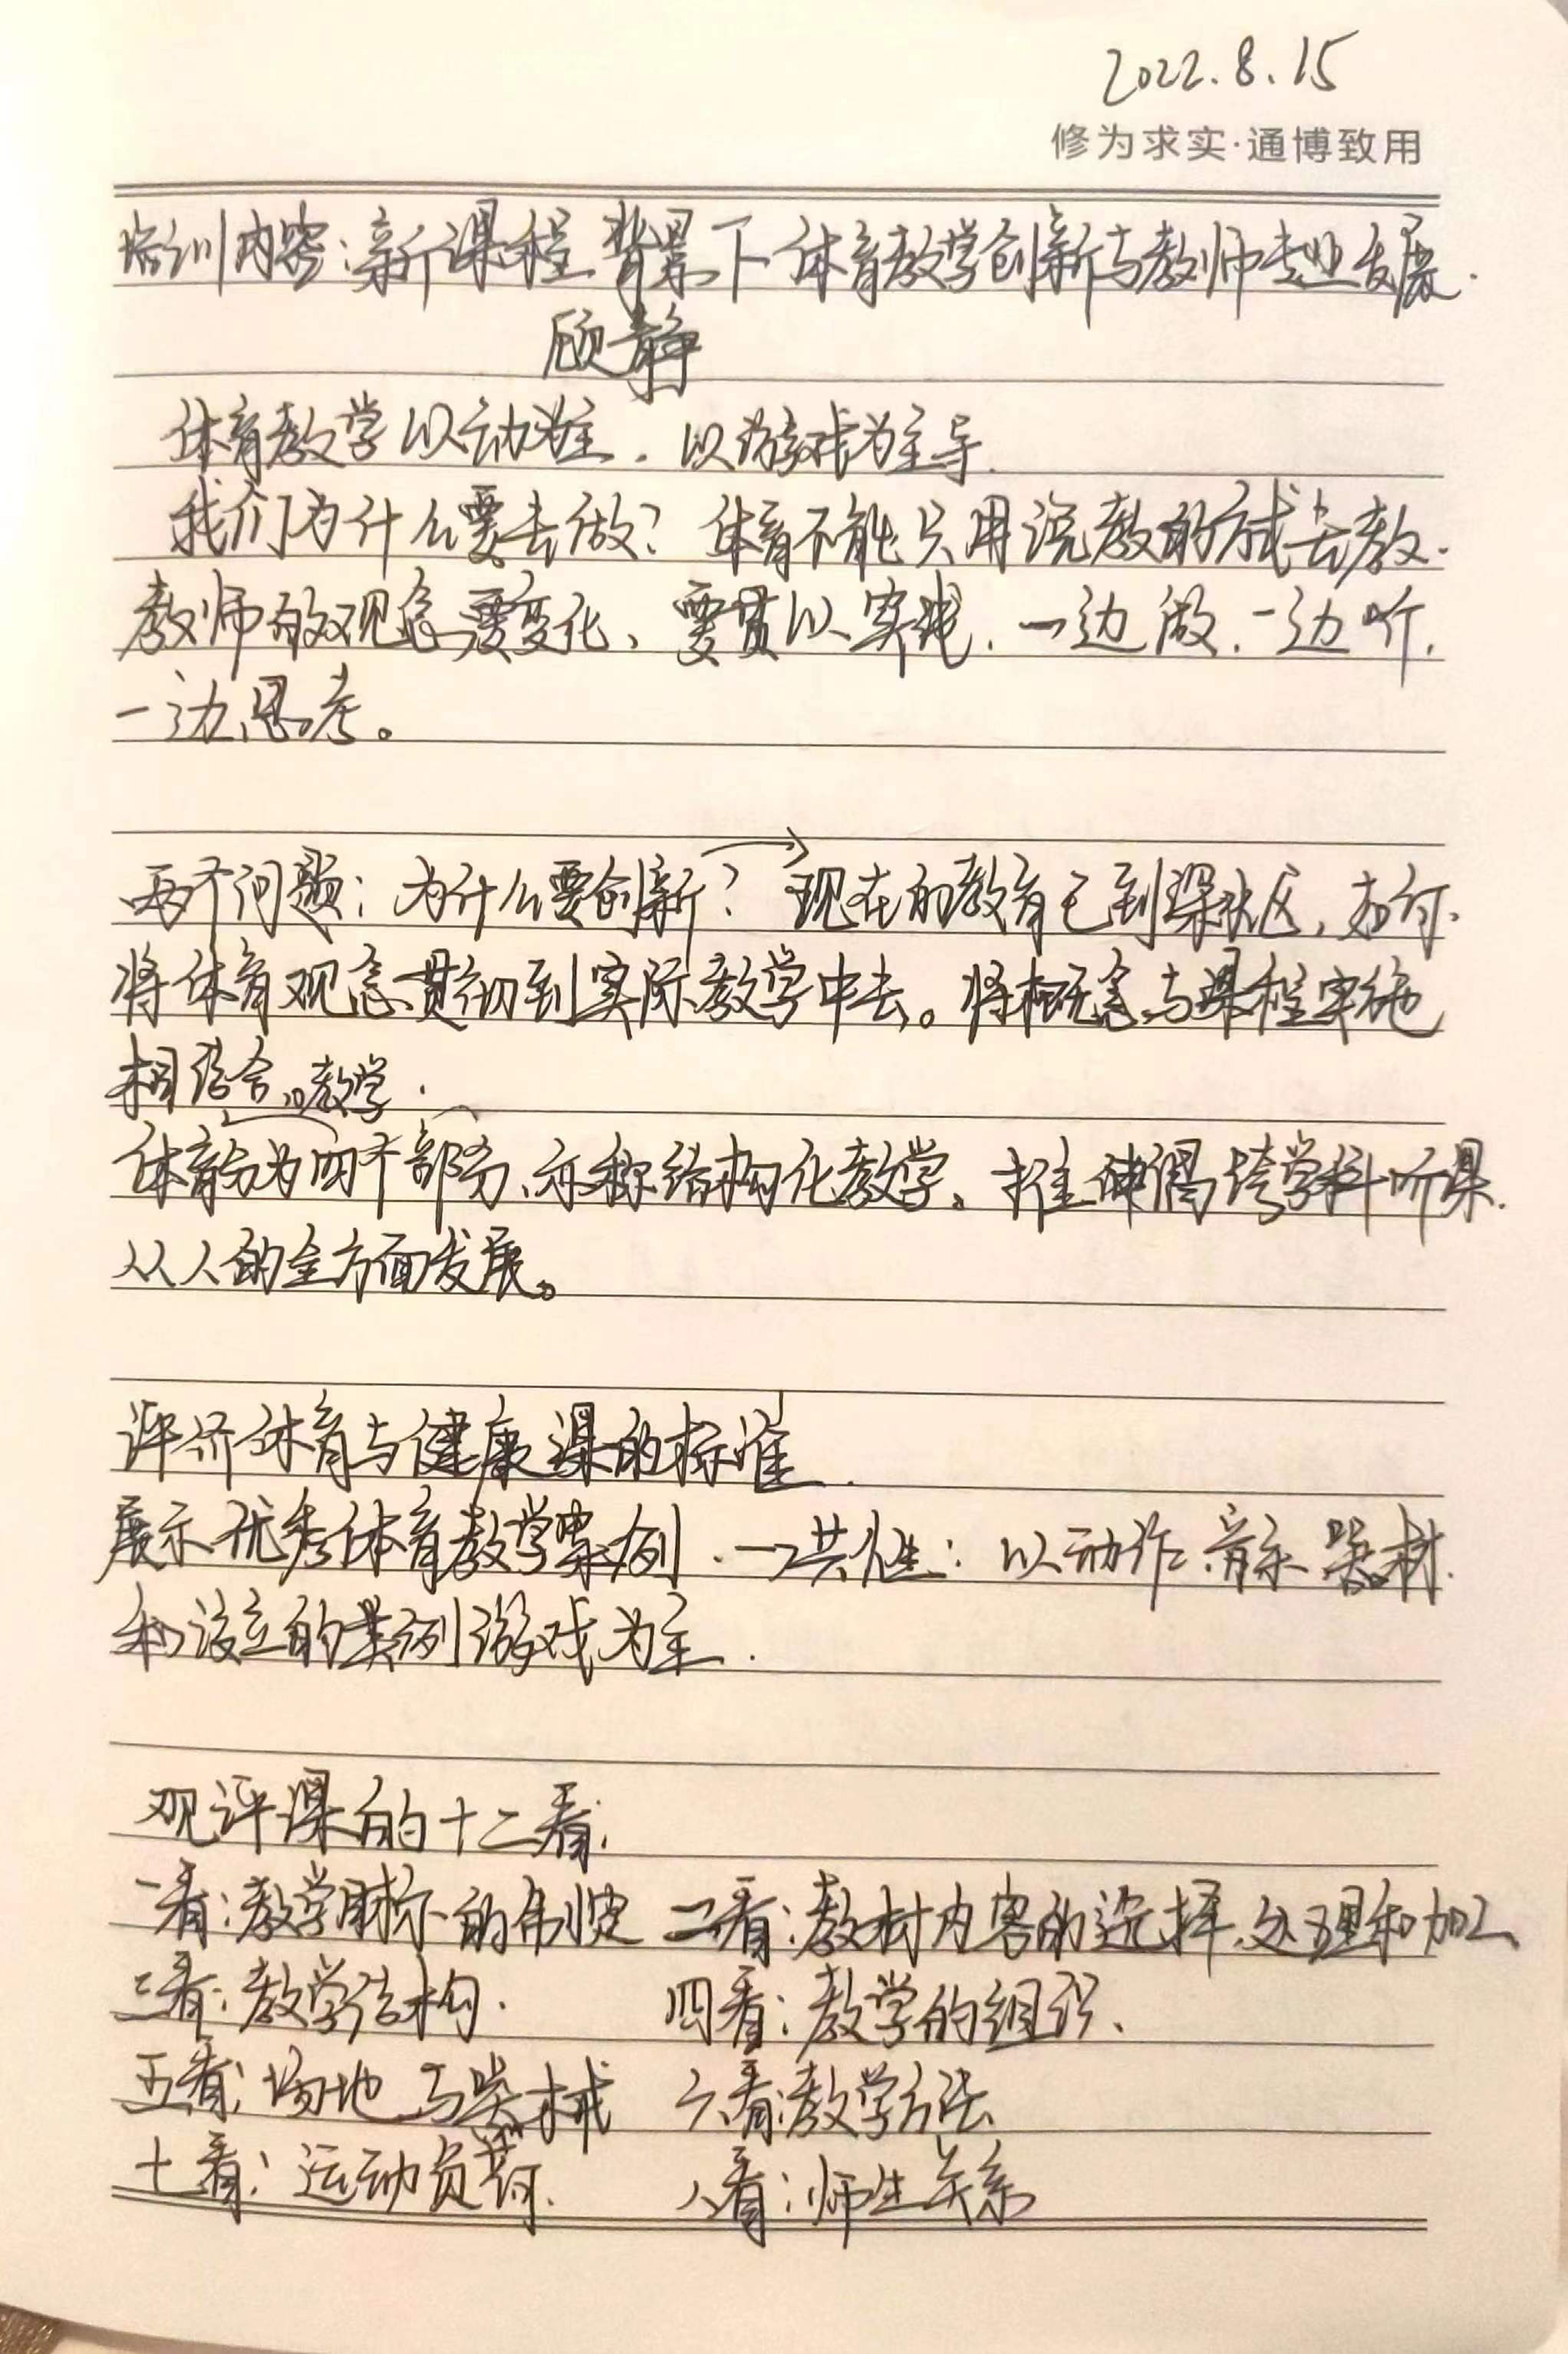 2022.8.15
修为求实·通博致用
培训内容：新课程背景下体育教学创新与教师专业发展.
顾静
体育教学以动为主.以游戏为主导.
我们为什么要去做？体育不能只用说教的方式去教.
教师的观念要变化、要贯以实践.一边做.一边听.
一边思考。
两个问题：为什么要创新？→现在的教育已到深水区,
将体育观念贯彻到实际教学中去。将概念与课程实施
相结合。教学.
体育分为四个部分、亦称结构化教学。推倡跨学科听课.
从人的全方面发展。
评价体育与健康课的标准.
展示优秀体育教学案例.一共性：以动作音乐器材.
和设立的案例游戏为主.
观评课的十二看：
一看：教学目标的制定 二看：教材内容的选择、处理和加工
三看：教学结构. 四看：教学的组织、
五看：场地与器械 六看：教学方法
七看：运动负荷. 八看：师生关系